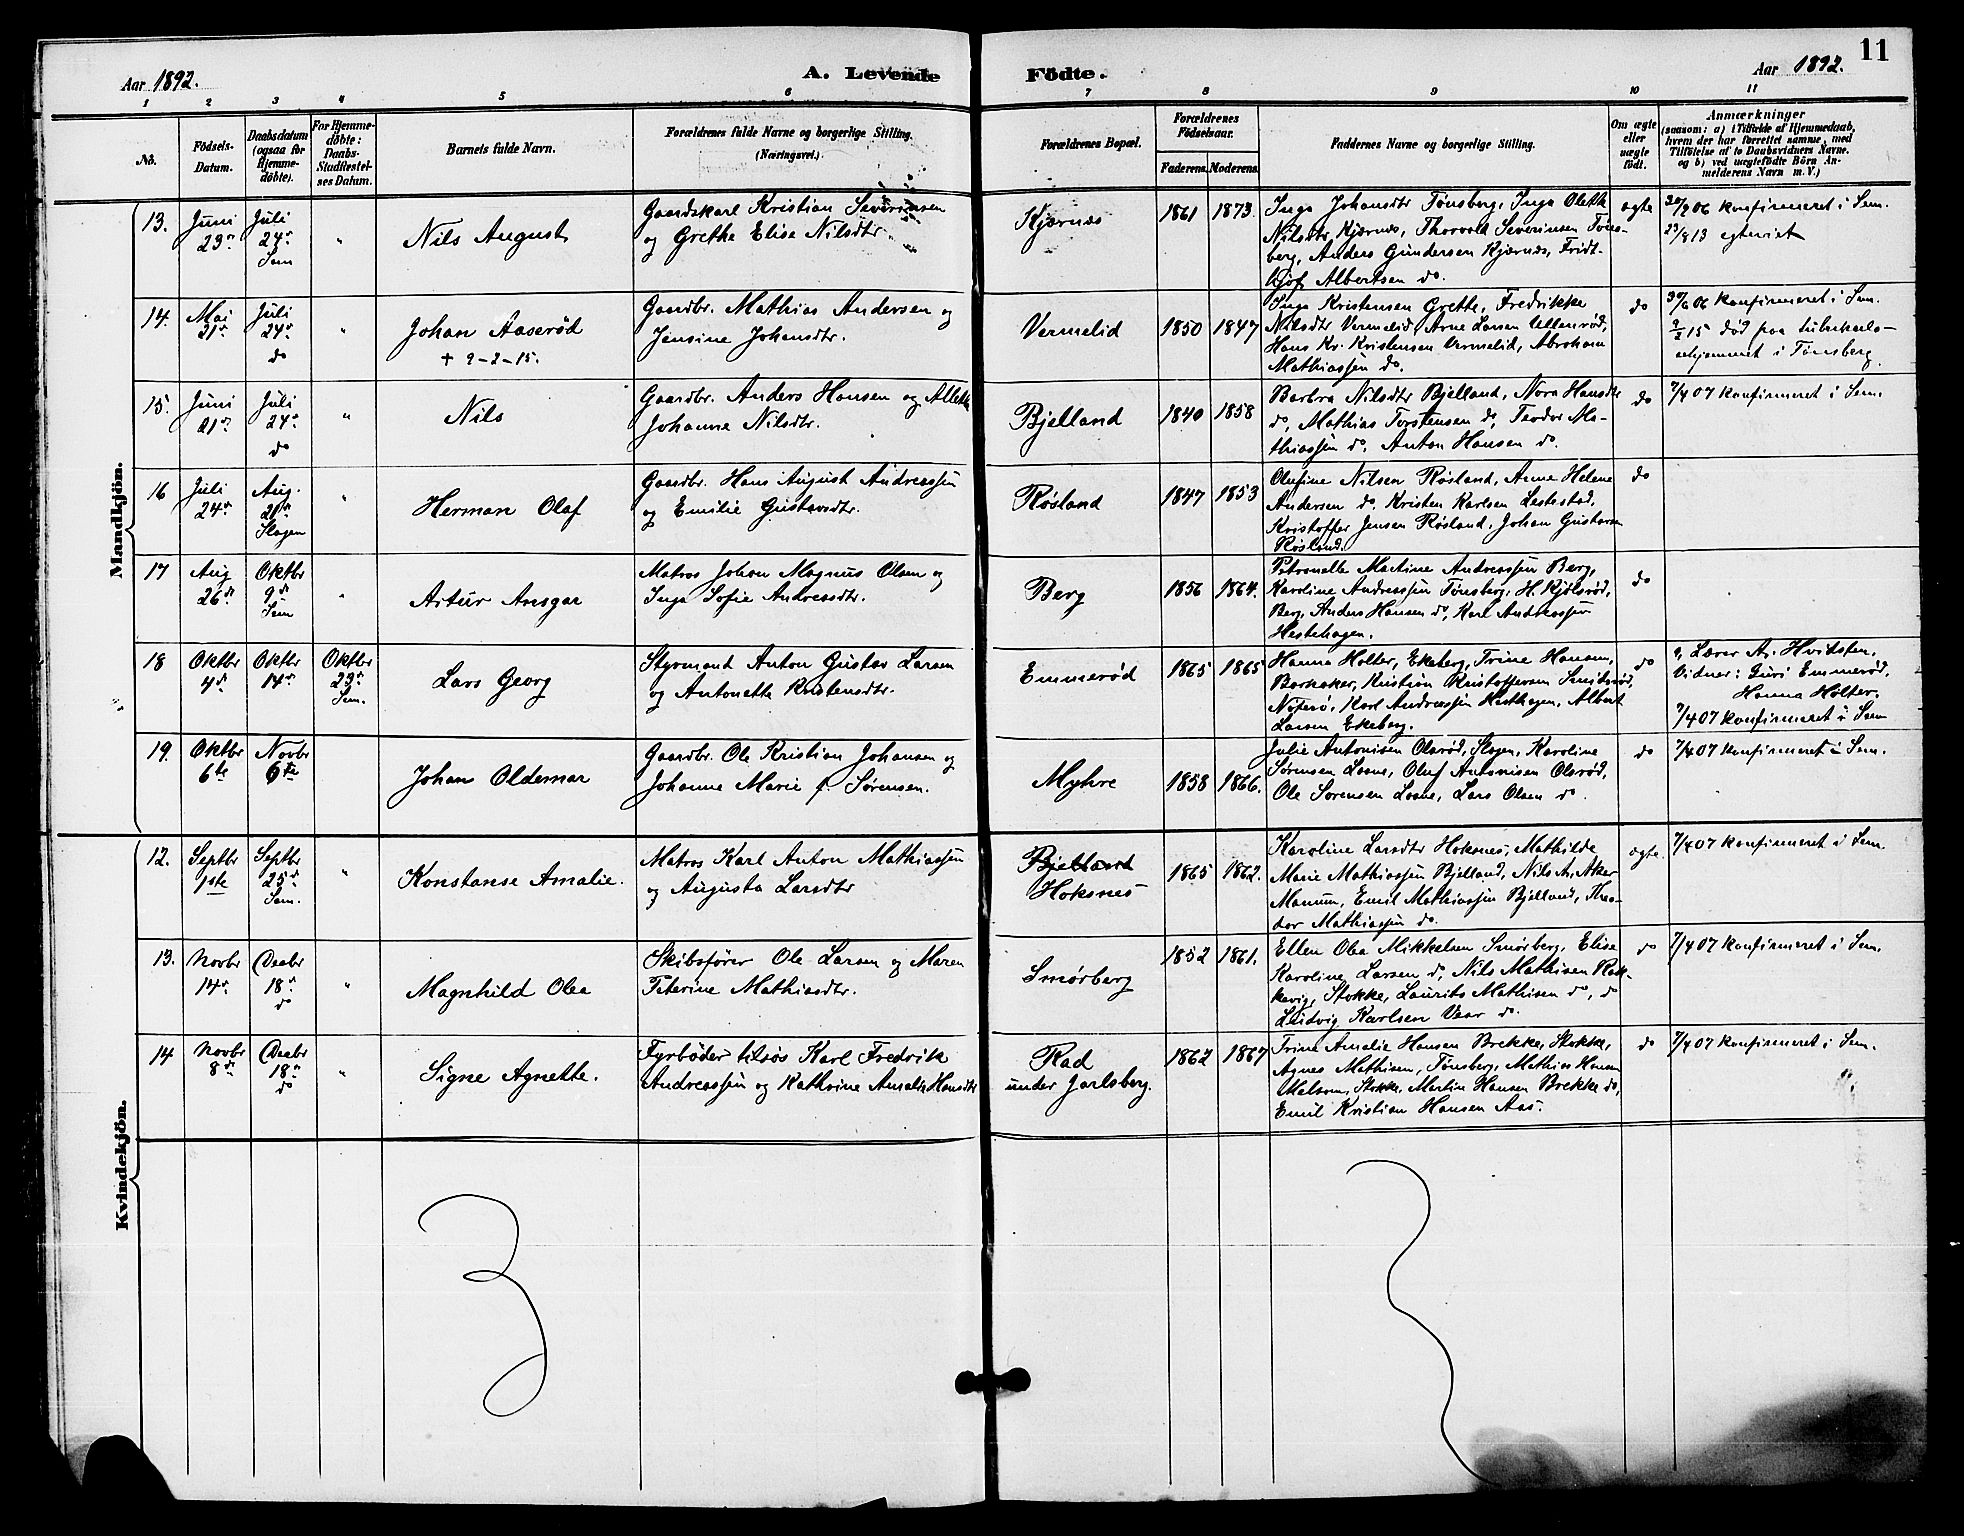 11
Aar 1892.
A. Levende Födte.
Aar 1892.
1 2 3 4 5 6 7 8 9 10 11
No.
Födsels-
Datum.
Daabsdatum
(ogsaa for
Hjemme-
döbte).
For Hjemme-
döbte:
Daabs-
Stadfæstel-
ses Datum.
Barnets fulde Navn.
Forældrenes fulde Navne og borgerlige Stilling.
(Næringsvei.)
Forældrenes Bopæl.
Forældrenes
Födselsaar.
Faderens. Moderens.
Faddernes Navne og borgerlige Stilling.
Om ægte
eller
uægte
født.
Anmærkninger
(saasom: a) i Tilfælde af Hjemmedaab,
hvem der har forrettet samme, med
Tilföielse af to Daabsvidners Navne.
og b) ved uægtefödte Börn An-
melderens Navn m. V.)
Mandkjön.
13.
Juni
23de
Juli
24de
Sem
"
Nils August
Gaardskarl Kristian Severinsen
og Grethe Elise Nilsdtr.
Kjærnæs
1861 1873.
Inga Johansdtr Tønsberg, Inga Olette
Nilsdtr Kjærnæs, Thorvald Severinsen Tøns-
berg, Anders Gundersen Kjærnæs, Fridt-
hjof Albertsen do.
ægte
konfirmeret i Sem.
23/8 13 egteviet
14.
Mai
21de
Juli
24de
do
"
Johan Aaserød
+ 9-2-15.
Gaardbr. Mathias Andersen og
Jensine Johansdtr.
Vermelid
1850 1847
Inga Kristensen Grette, Fredrikke
Nilsdtr Vermelid, Arne Larsen Ullenrød,
Hans Kr. Kristensen Vermelid, Abraham
Mathiassen do.
do
konfirmeret i Sem.
9/2 15 død paa tuberkulo-
sehjemmet i Tønsberg.
15.
Juni
21de
Juli
24de
do
"
Nils
Gaardbr. Anders Hansen og Allette
Johanne Nilsdtr.
Bjelland
1840 1858
Barbra Nilsdtr Bjelland, Nora Hansdtr
do, Mathias Torstensen do, Teodor Ma-
thiassen do. Anton Hansen do.
do
7/4 07 konfirmeret i Sem.
16
Juli
24de
Aug.
21de
Slagen
"
Herman Olaf
Gaardbr. Hans August Andreassen
og Emilie Gustavsdtr.
Røsland
1847 1853
Olefine Nilsen Røsland, Anne Helene
Andersen do. Kristen Karlsen Lestestad,
Kristoffer Jensen Røsland, Johan Gustavsen
Røsland.
do
17
Aug
26de
Oktbr
9de
Sem
"
Artur Ansgar
Matros Johan Magnus Olsen og
Inga Sofie Andreasdtr.
Berg
1856 1864.
Petronelle Martine Andreassen Berg,
Karoline Andreassen Tønsberg, H. Kjølsrød,
Berg, Anders Hansen do, Karl Andreassen
Hestehagen.
do
18
Oktbr
4de
Oktbr
14de
Oktbr
23de
Sem.
Lars Georg
Styrmand Anton Gustav Larsen
og Antonette Kristensdtr.
Emmerød
1865 1865
Hanna Holter, Ekeberg, Trine Hansen,
Barkaker, Kristian Kristoffersen Smidsrød,
Nøterø, Karl Andreassen Hesthagen, Albert
Larsen Ekeberg.
do
Lærer A. Hvidsten,
Vidner: Guri Emmerød,
Hanna Holter,
7/4 07 konfirmeret i Sem
19.
Oktbr
6te
Novbr
6te
Johan Oldemar
Gaardbr. Ole Kristian Johansen og
Johanne Marie f. Sørensen.
Myhre
1858 1866.
Julie Antonisen Olsrød, Slagen, Karoline
Sørensen Losne, Oluf Antonisen Olsrød,
Ole Sørensen Losne, Lars Olsen do.
do
7/4 07 konfirmeret i Sem.
Kvindekjön.
12.
Septbr
1ste
Septbr
25de
Sem.
"
Konstanse Amalie.
Matros Karl Anton Mathiassen
og Augusta Larsdtr
Bjelland
Hoksnes
1865 1862.
Karoline Larsdtr Hoksnes, Mathilde
Marie Mathiassen Bjelland, Nils A. Aker
Manum, Emil Mathiassen Bjelland, Theo-
dor Mathiassen do.
ægte
7/4 07 konfirmeret i Sem.
13.
Novbr
14de
Decbr
18de
do
"
Magnhild Olea
Skibsfører Ole Larsen og Maren
Peterine Mathiasdtr.
Smørberg
1852 1861.
Ellen Olea Mikkelsen Smørberg, Elise
Karoline Larsen do, Nils Mathisen Rak-
kevig, Stokke, Laurits Mathisen do, do
Ludvig Karlsen Vear do.
do
7/4 07 konfirmeret i Sem.
14
Novbr
8de
Decbr
18de
do
"
Signe Agnette.
Fyrbøder tilsøs Karl Fredrik
Andreassen og Kathrine Amalie Hansdtr
Rad
under Jarlsberg.
1862 1867
Trine Amalie Hansen Brekke, Stokke,
Agnes Mathisen, Tønsberg, Mathias Hansen
Melsom, Stokke, Martin Hansen Brekke do,
Emil Kristian Hansen Aas.
do
7/4 07 konfirmeret i Sem.